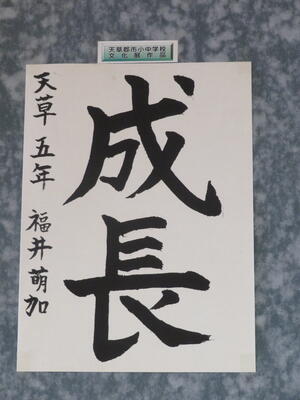 天草郡市小中学校
文化展作品
成長
天草 五年 福井萌加